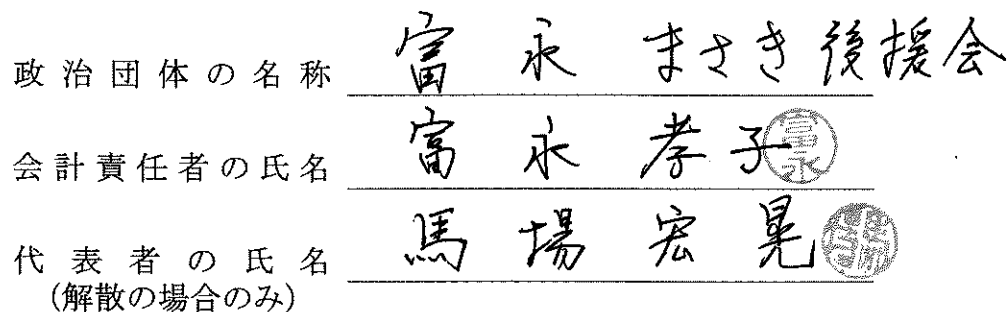 政治団体の名称 富永まさき後援会
会計責任者の氏名 富永孝子 富永
代表者の氏名 馬場宏晃
(解散の場合のみ)